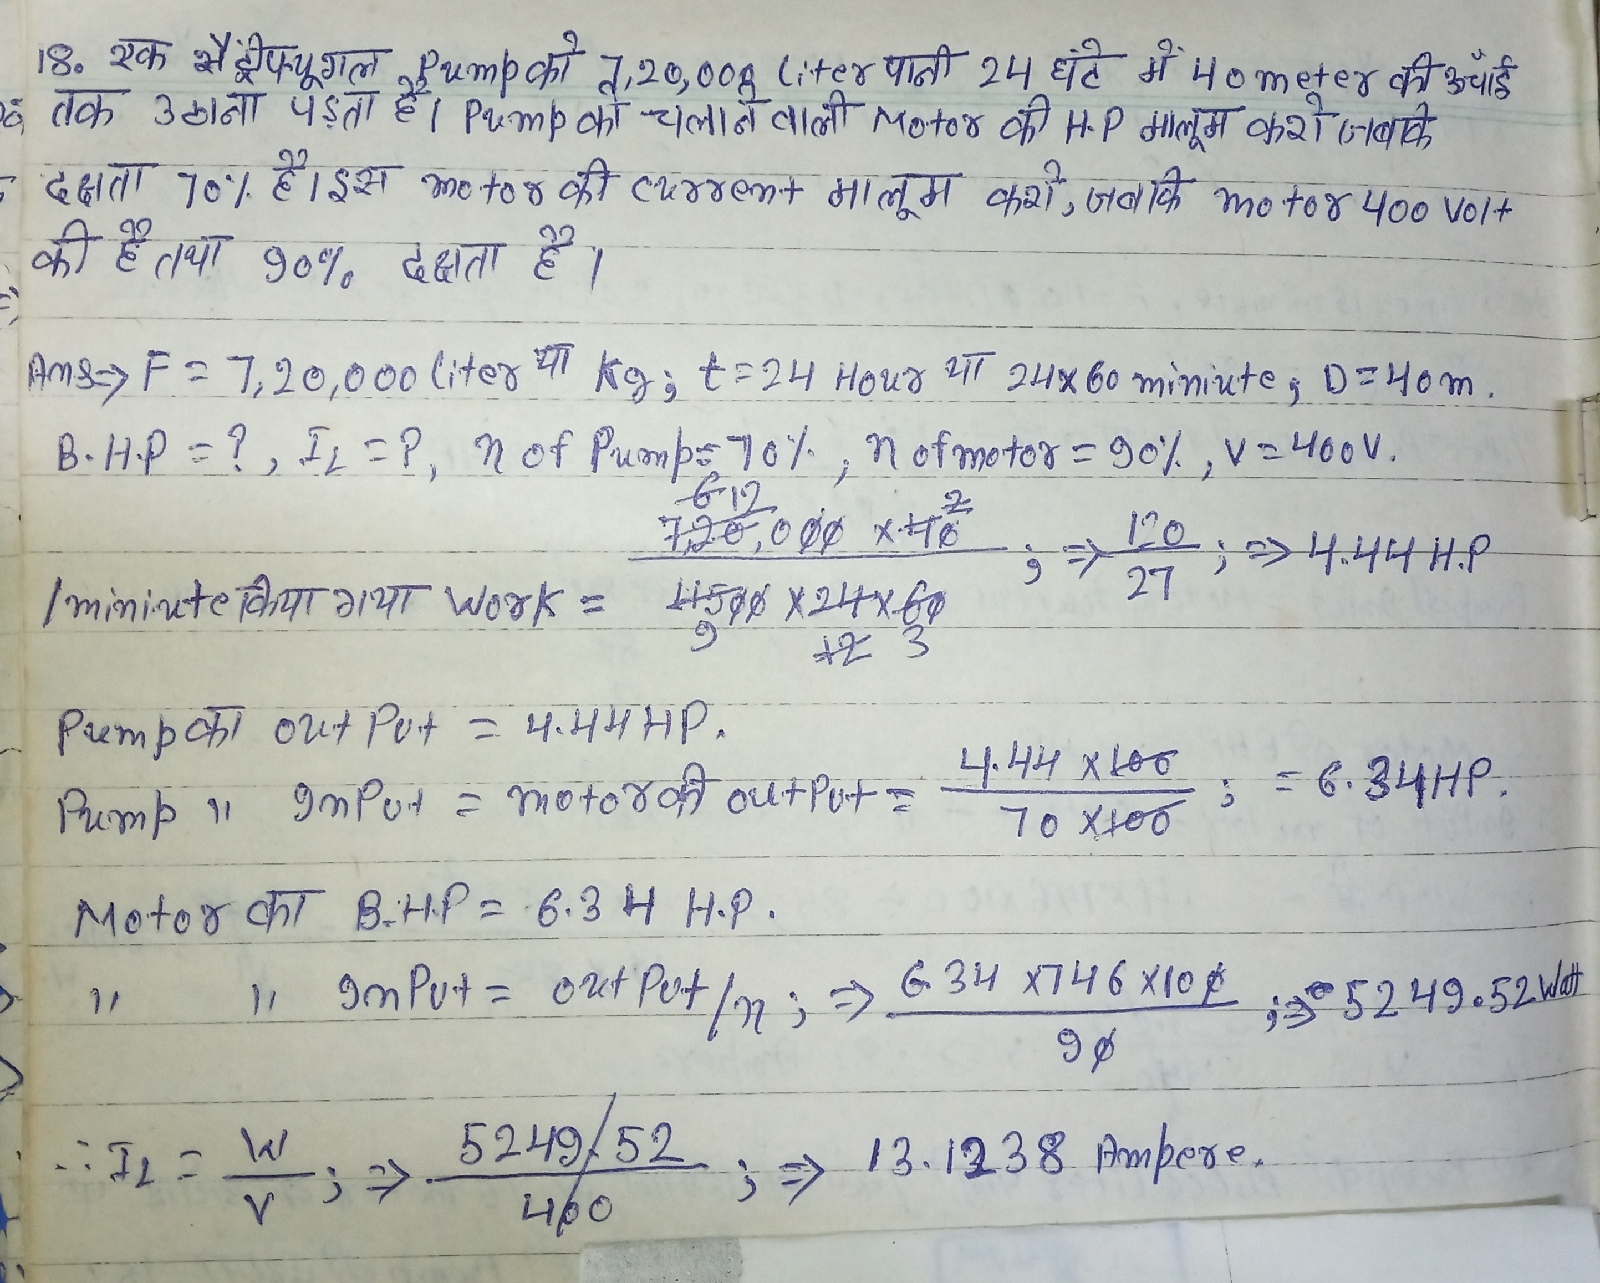 18. एक सैंट्रीफ्यूगल Pump को 7,20,000 liter पानी 24 घंटे में 40 meter की ऊँचाई
तक उठाना पड़ता है। Pump को चलाने वाली Motor की H.P मालूम करो जबकि
दक्षता 70% है। इस motor की current मालूम करो, जबकि motor 400 Volt
की है तथा 90% दक्षता है।
Ans⇒ F = 7,20,000 liter या Kg; t = 24 Hour या 24x60 miniute; D = 40m.
B.H.P = ?, IL = ?, n of Pump = 70%, n of motor = 90%, V = 400V.
6 12 2
7,20,000 x 40 ; ⇒ 120 ; ⇒ 4.44 H.P
/miniute किया गया Work = 4500 x 24 x 60 27
9 12 3
Pump का outPut = 4.44 HP.
Pump " InPut = motor की outPut = 4.44 x 100 ; = 6.34 HP.
70 x 100
Motor का B.H.P = 6.34 H.P.
" " InPut = outPut/n ; ⇒ 6.34 x 746 x 100 ; ⇒ 5249.52 Watt
90
∴ IL = W ; ⇒ 5249/52 ; ⇒ 13.1238 Ampere.
V 400